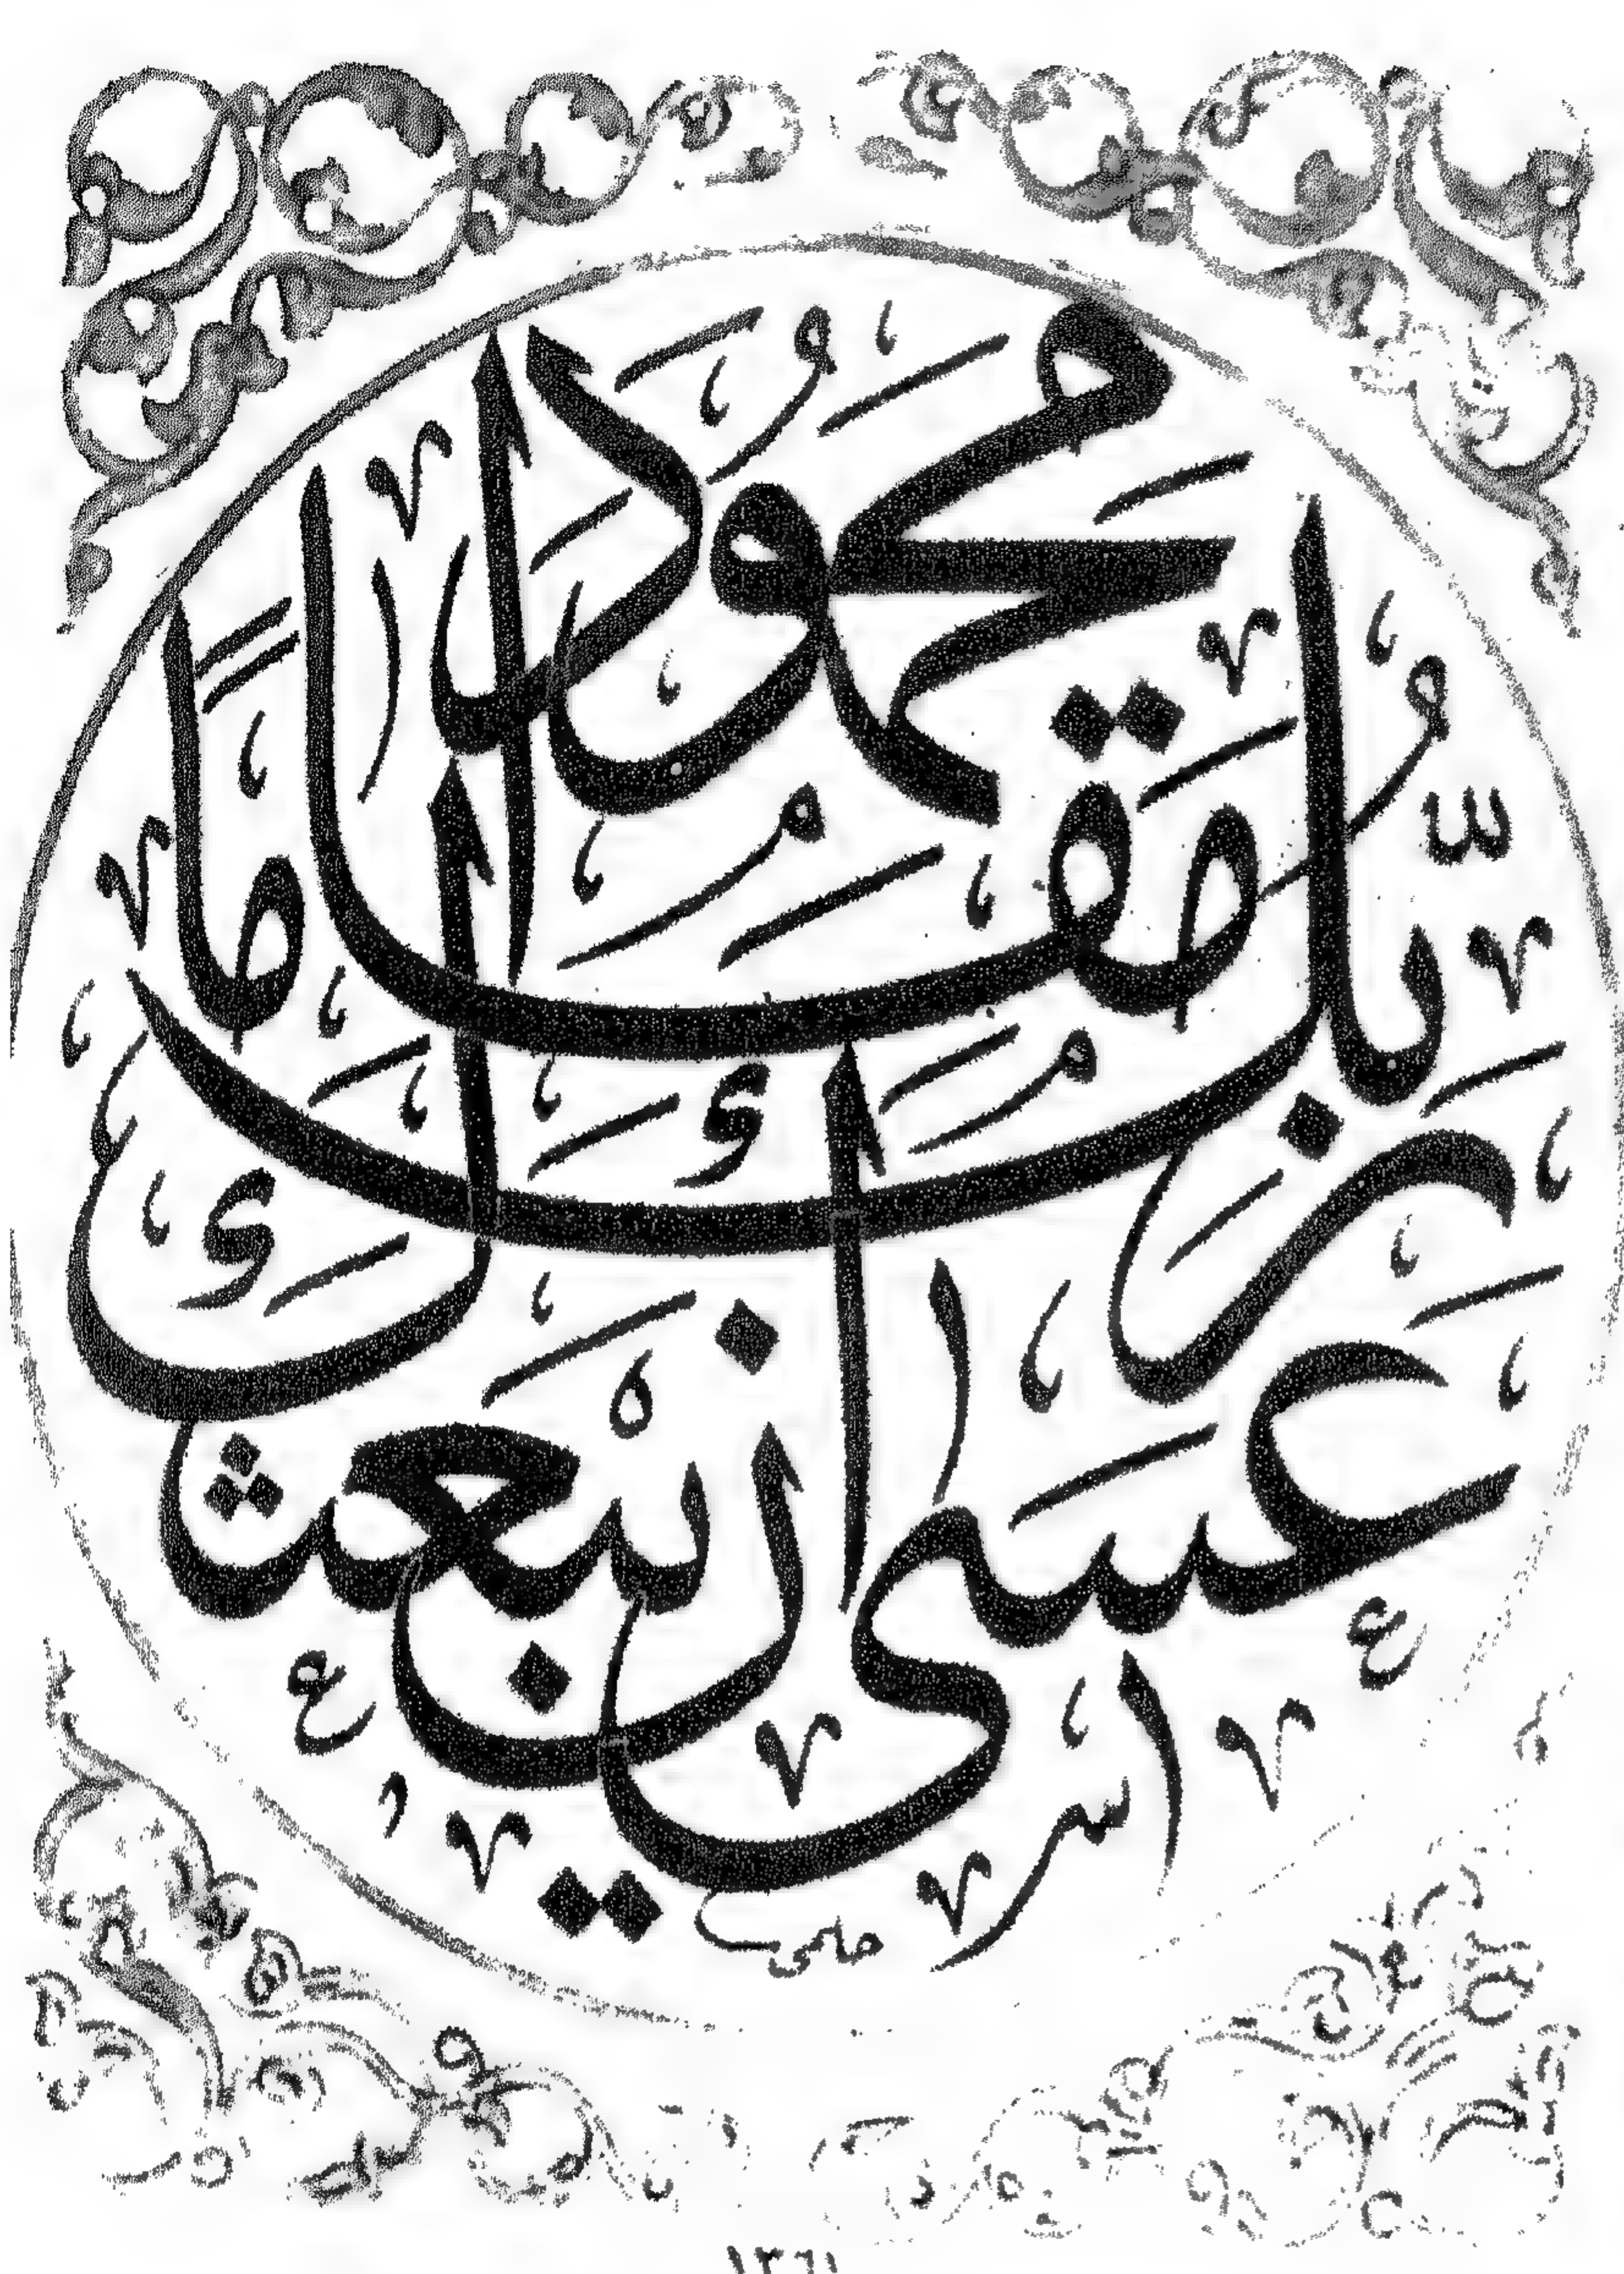 عسى ان يبعثك
ربك مقاما
محمودا
١٣٦١